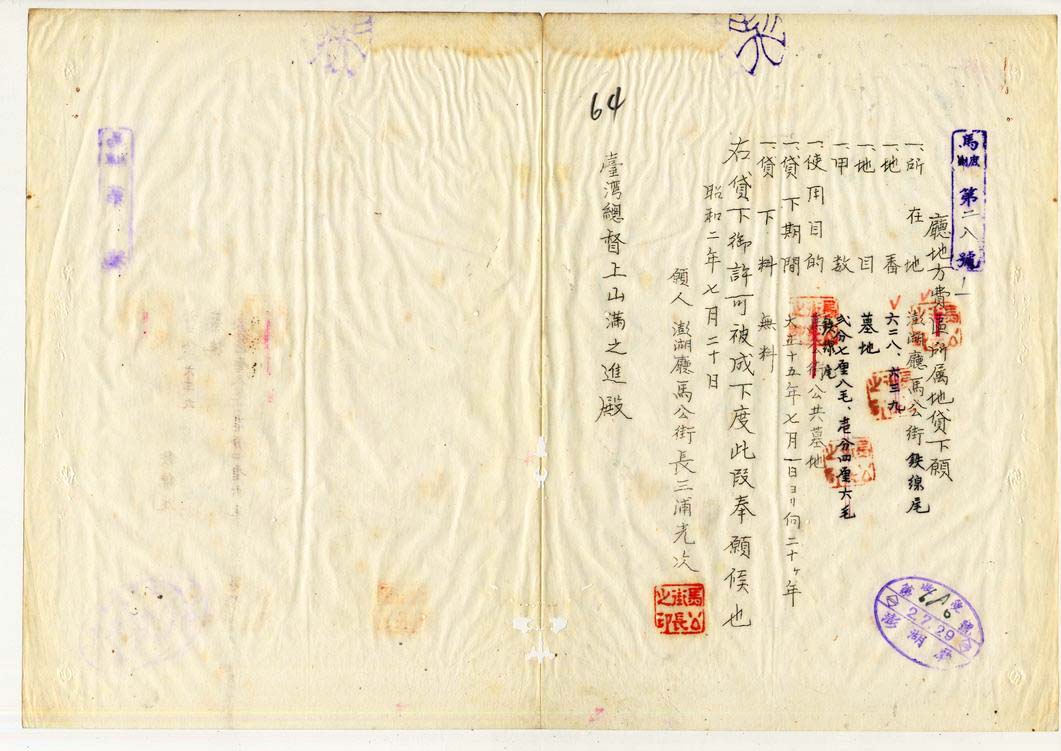 馬庶 第二八號
廳地方費區所属地貸下願
一、所在地 澎湖廳馬公街鉄線尾
一、地番 六二八、六三九
一、地目 墓地
一、甲数 弐分七厘八毛、壱分四厘六毛
一、使用目的 鉄線尾公共墓地
一、貸下期間 大正十五年七月一日ヨリ向二十ヶ年
一、貸下料 無料
右貸下御許可被成下度此段奉願候也
昭和二年七月二十日
願人 澎湖廳馬公街長三浦光次
馬公街長之印
臺湾總督上山満之進殿
64
2.7.29
澎湖廳